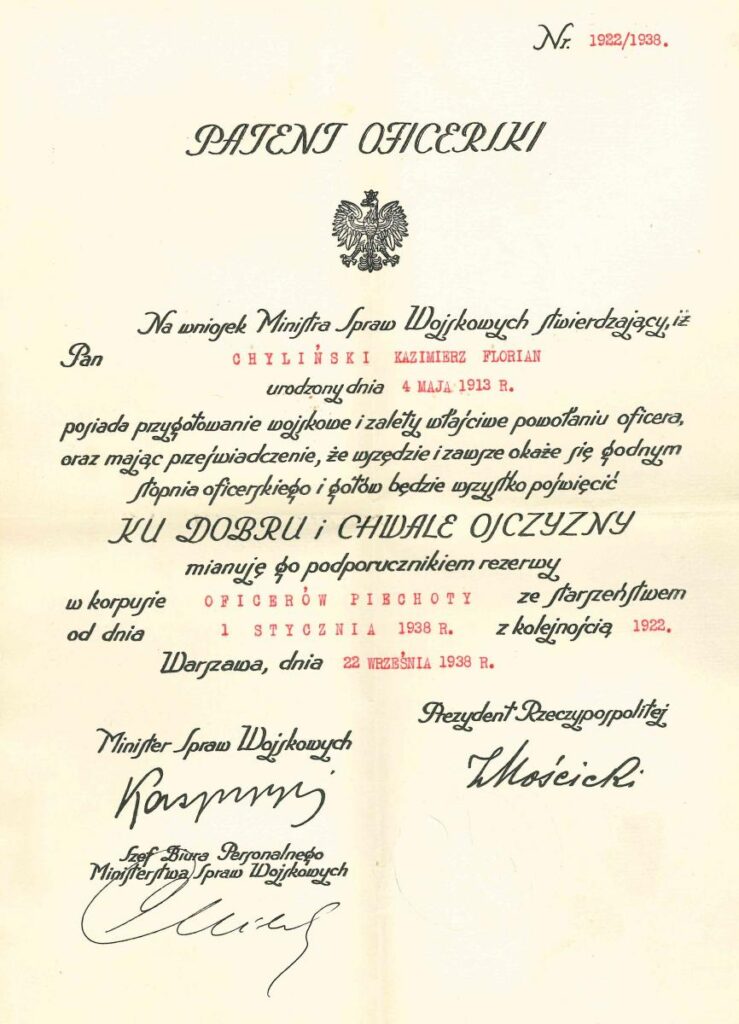 Nr. 1922/1938.
PATENT OFICERSKI
Na wniosek Ministra Spraw Wojskowych stwierdzający, iż
Pan CHYLIŃSKI KAZIMIERZ FLORIAN
urodzony dnia 4 MAJA 1913 R.
posiada przygotowanie wojskowe i zalety właściwe powołaniu oficera,
oraz mając przeświadczenie, że wszędzie i zawsze okaże się godnym
stopnia oficerskiego i gotów będzie wszystko poświęcić
KU DOBRU i CHWALE OJCZYZNY
mianuję go podporucznikiem rezerwy
w korpusie OFICERÓW PIECHOTY ze starszeństwem
od dnia 1 STYCZNIA 1938 R. z kolejnością 1922.
Warszawa, dnia 22 WRZEŚNIA 1938 R.
Prezydent Rzeczypospolitej
IMościcki
Minister Spraw Wojskowych
Szef Biura Personalnego
Ministerstwa Spraw Wojskowych